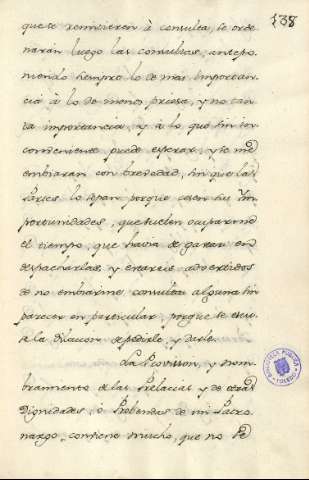 138
que se remitieren à consulta, se orde
naràn luego las consultas, antepo
niendo siempre lo de mas importan
cia à lo de menos priesa, y no tan
ta importancia, y à lo que sin in
conveniente puede esperar, y se me
embiaran con brevedad, sin que las
Partes lo sepan porque cesen sus Im
portunidades, que suelen ocupar
el tiempo, que havia de gastar en
despacharlas, y estareis advertidos
de no embiarme consulta alguna sin
parecer en particular, porque se escu
se la dilacion de pedirle, y darle.
La Provission, y nom
bramiento de las Prelacias, y de otras
Dignidades, ò Prebendas de mi Patro
nazgo, contiene mucho, que no se
BIBLIOTECA PUBLICA
TOLEDO